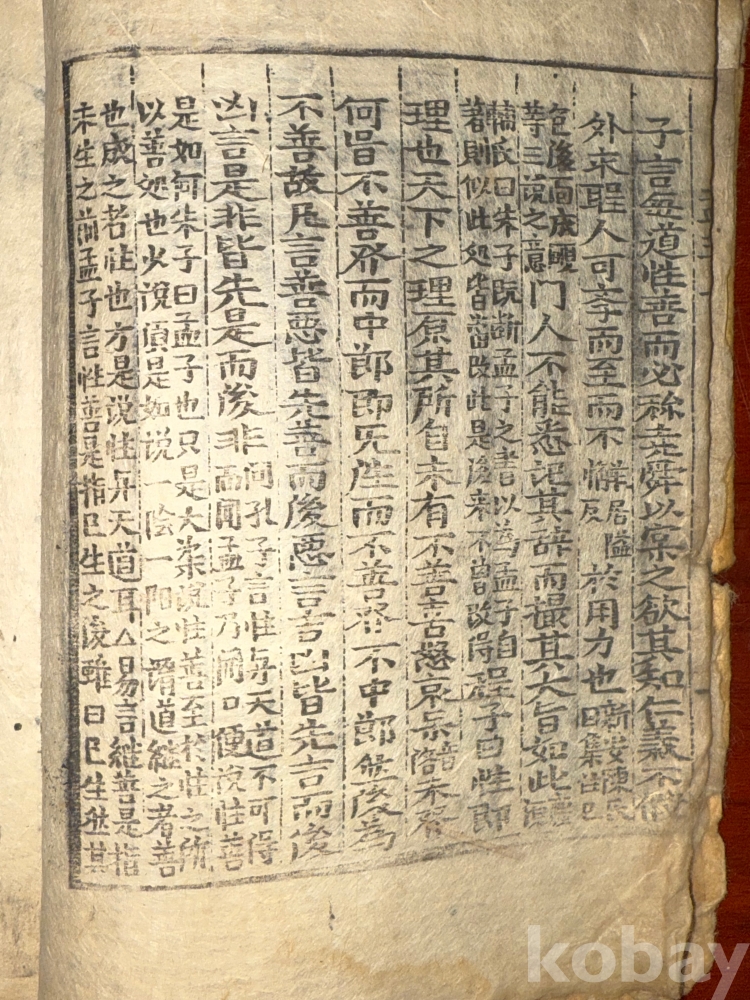 子言每道性善而必称尭舜以宲之欲其知仁義不假
外求聖人可孝而至而不懈居隘反於用力也新安陳氏曰集註已
包後面成覸
等三說之意門人不能悉記其辞而撮其大旨如此
輔氏曰朱子既断孟子之書以為孟子自
著則似此処皆當改此是後来不曽改得程子曰性即
理也天下之理原其所自未有不善喜怒哀楽音洛未発
何甞不善発而中節即无性而不善発不中節然後為
不善故凡言善悪皆先善而後悪言吉凶皆先吉而後
凶言是非皆先是而後非問孔子言性与天道不可得
而聞孟子乃開口便說性善
是如何朱子曰孟子也只是大槩說性善至於性之所
以善処也少說須是如说一陰一阳之謂道継之者善
也成之者性也方是说性与天道耳△易言継善是指
未生之前孟子言性善是指已生之後雖曰已生然其
kobay